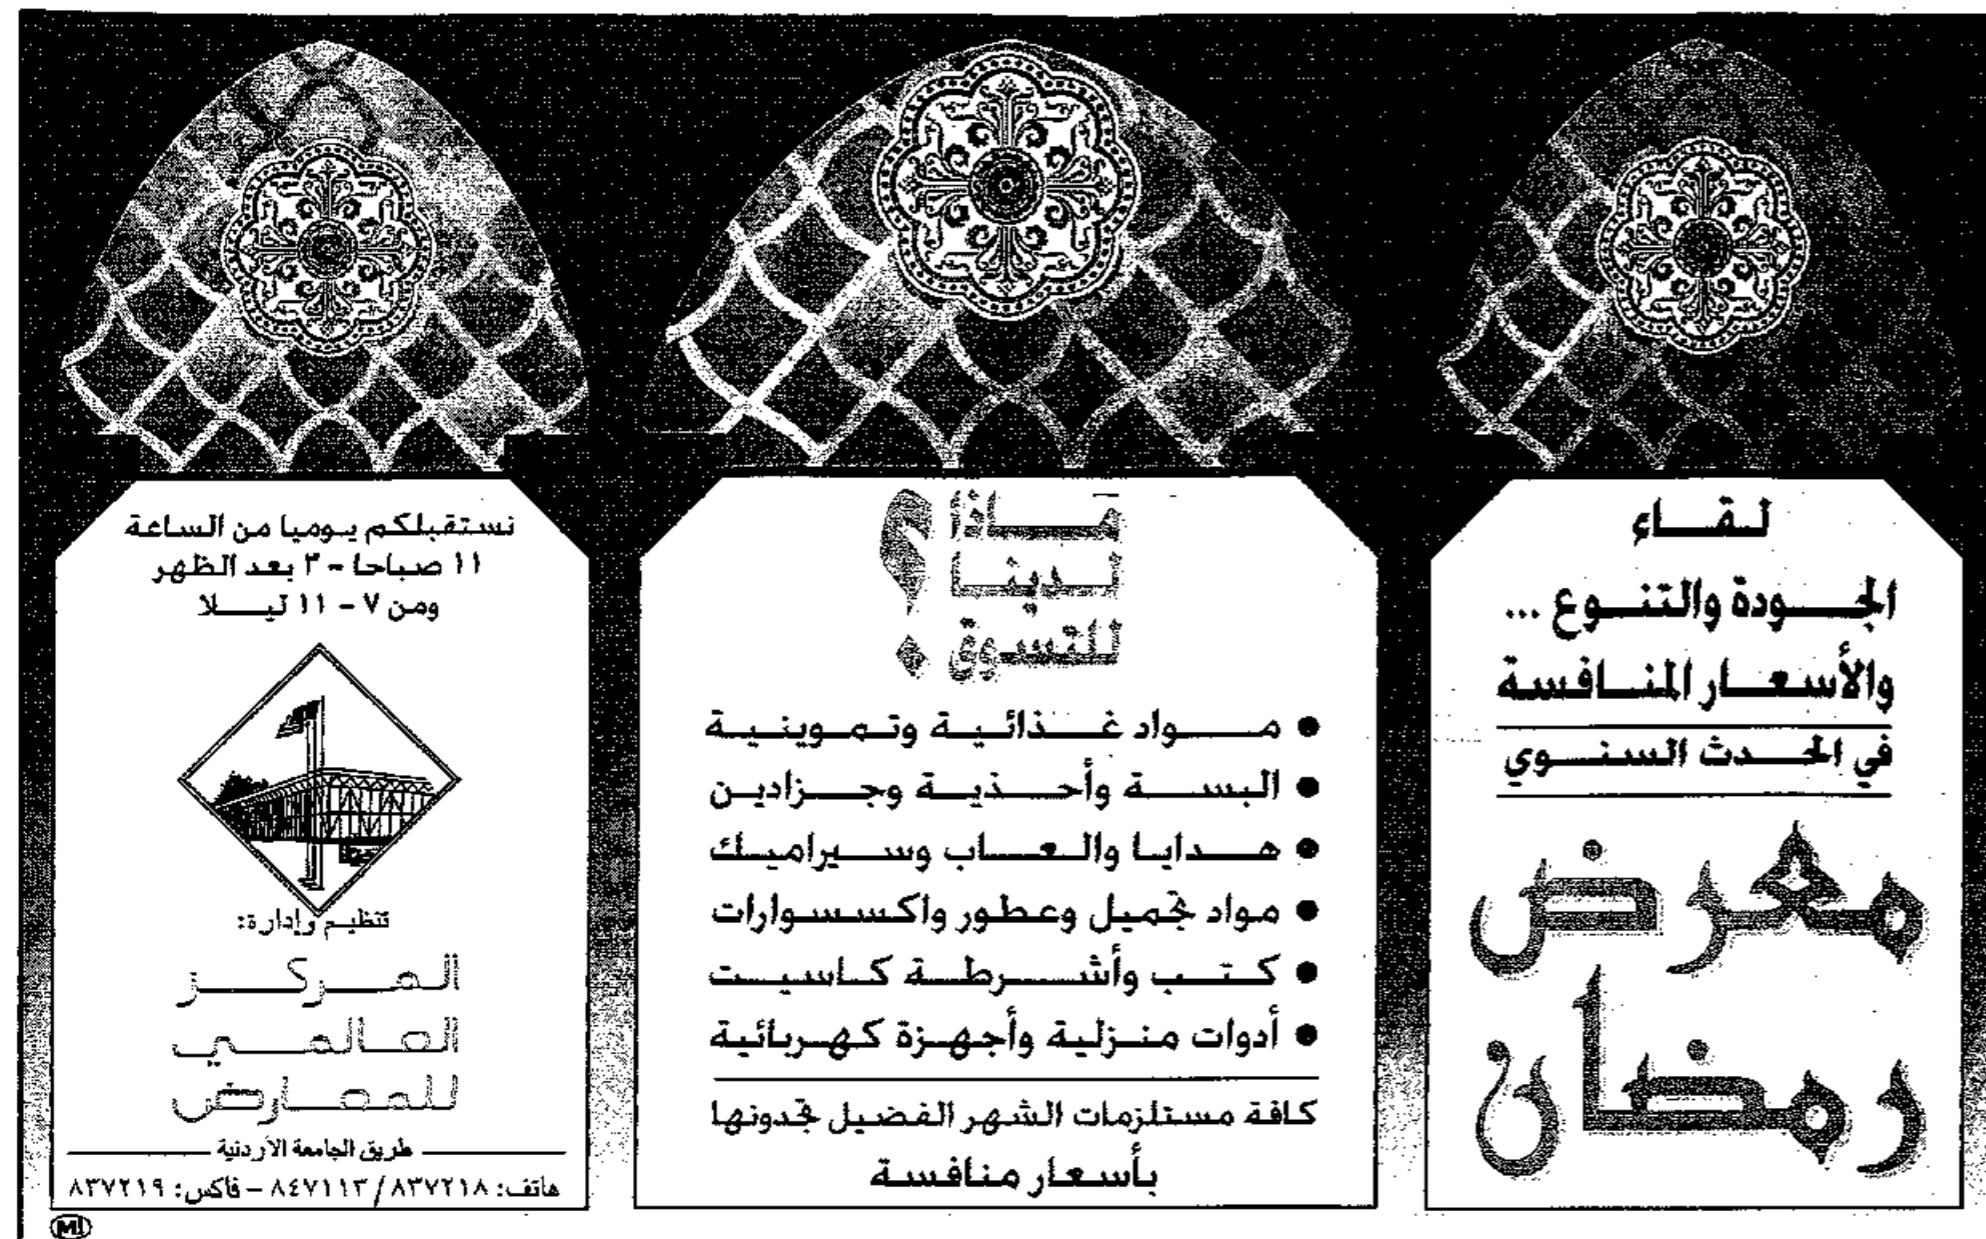 لقاء
الجودة والتنوع ...
والأسعار المنافسة
في الحدث السنوي
معرض
رمضان
ماذا
لدينا
للتسوق ؟
● مواد غذائية وتموينية
● البسة وأحذية وجزادين
● هدايا والعاب وسيراميك
● مواد تجميل وعطور واكسسوارات
● كتب وأشرطة كاسيت
● أدوات منزلية وأجهزة كهربائية
كافة مستلزمات الشهر الفضيل تجدونها
بأسعار منافسة
نستقبلكم يوميا من الساعة
١١ صباحا - ٣ بعد الظهر
ومن ٧ - ١١ ليلا
تنظيم وإدارة:
المركز
العالمي
للمعارض
طريق الجامعة الأردنية
هاتف: ٨٣٧٢١٨ / ٨٤٧١١٣ - فاكس: ٨٣٧٢١٩
MI